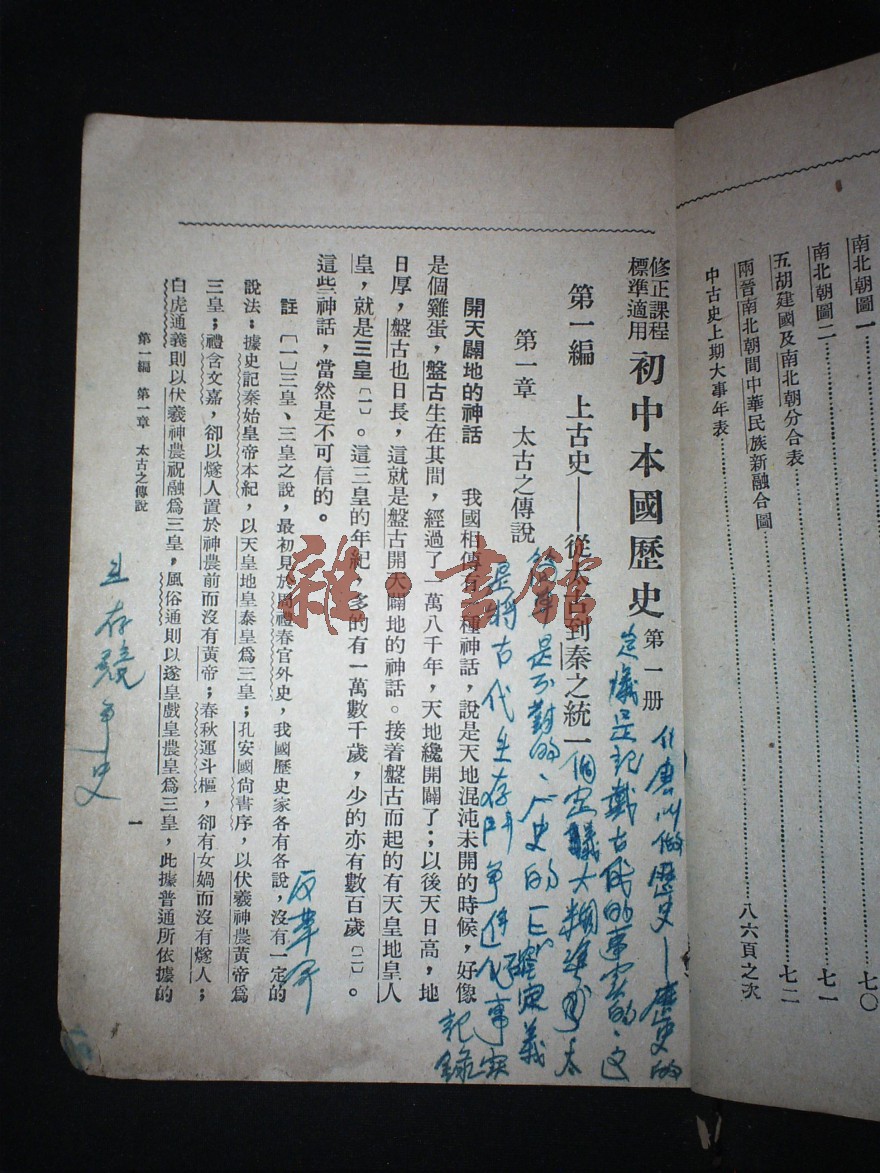 南北朝圖一……七〇
南北朝圖二……七一
五胡建國及南北朝分合表……七二
兩晉南北朝間中華民族新融合圖
中古史上期大事年表……八六頁之次
修正課程
標準適用
初中本國歷史 第一册
第一編 上古史——從太古到秦之統一
第一章 太古之傳說
開天闢地的神話 我國相傳有一種神話，說是天地混沌未開的時候，好像
是個雞蛋，盤古生在其間，經過了一萬八千年，天地纔開闢了；以後天日高，地
日厚，盤古也日長，這就是盤古開天闢地的神話。接着盤古而起的有天皇地皇人
皇，就是三皇〔一〕。這三皇的年紀，多的有一萬數千歲，少的亦有數百歲〔二〕。
這些神話，當然是不可信的。
註 〔一〕三皇、三皇之說，最初見於周禮春官外史，我國歷史家各有各說，沒有一定的
說法：據史記秦始皇帝本紀，以天皇地皇泰皇爲三皇；孔安國尙書序，以伏羲神農黃帝爲
三皇；禮含文嘉，卻以燧人置於神農前而沒有黃帝；春秋運斗樞，卻有女媧而沒有燧人；
白虎通義則以伏羲神農祝融爲三皇，風俗通則以遂皇戲皇農皇爲三皇，此據普通所依據的
第一編 第一章 太古之傳說
一
什麼叫做歷史—歷史的
定議是記載古代的事實的、这
個定議大糊塗
是不對的、歷史的正確定義
是將古代生存鬥爭進化事實
記錄
生存競爭史
雜·書館